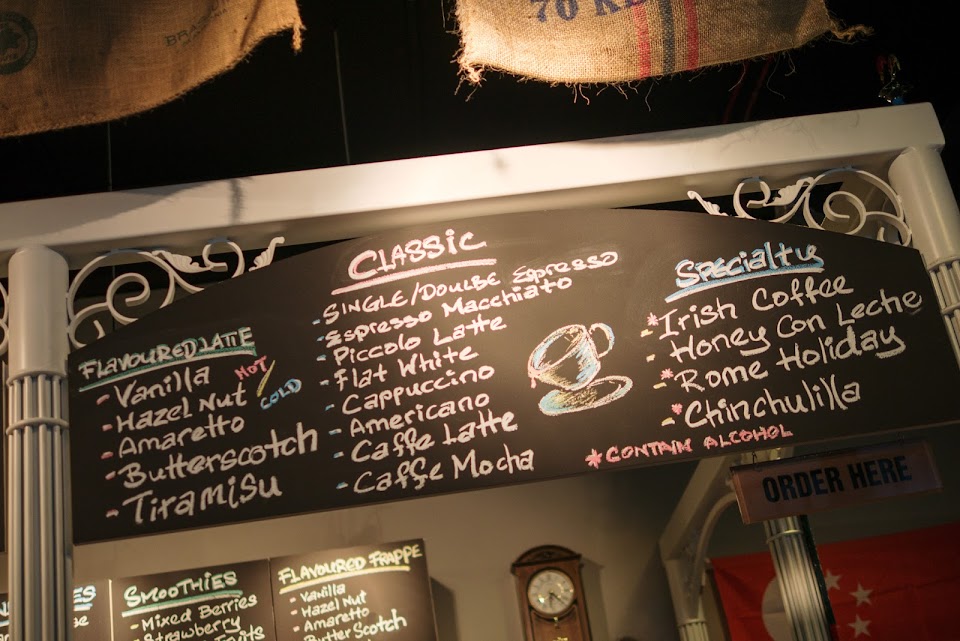 70 KE
FLAVOURED LATTE
- Vanilla
- Hazel Nut
- Amaretto
- Butterscotch
- Tiramisu
HOT/
COLD
CLASSIC
- SINGLE/DOULBE Espresso
- Espresso Macchiato
- Piccolo Latte
- Flat White
- Cappuccino
- Americano
- Caffe Latte
- Caffe Mocha
Specialty
- *Irish Coffee
- Honey Con Leche
- *Rome Holiday
- *Chinchulilla
*CONTAIN ALCOHOL
ORDER HERE
SMOOTHIES
- Mixed Berries
- Strawberry
FLAVOURED FRAPPE
- Vanilla
- Hazel Nut
- Amaretto
- Butter Scotch